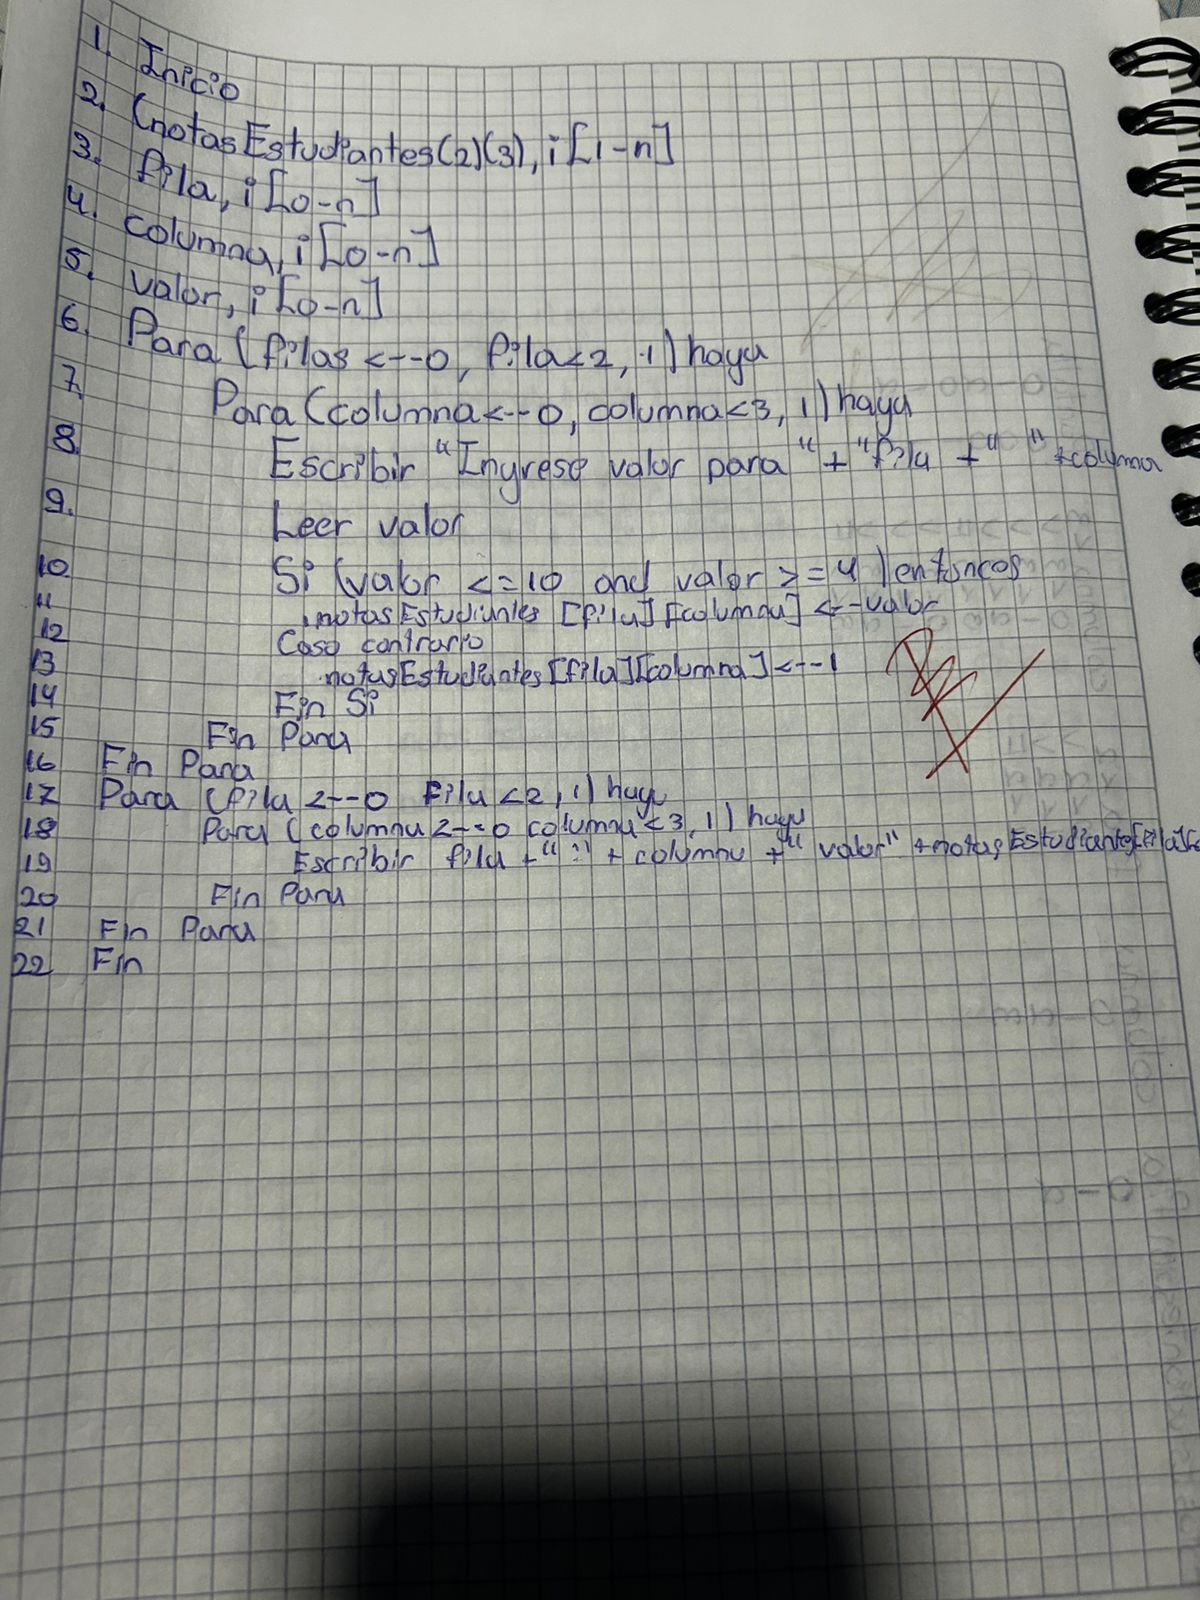 1. Inicio
2. (notasEstudiantes(2)(3), i[1-n]
3. fila, i[0-n]
4. columna, i[0-n]
5. valor, i[0-n]
6. Para (filas <--0, fila<2, 1) haga
7. Para (columna<--0, columna<3, 1) haga
8. Escribir "Ingrese valor para "+"fila +" " +columna
9. Leer valor
10 Si (valor <=10 and valor >=4) entonces
11 notasEstudiantes [fila][columna] <--valor
12 Caso contrario
13 notasEstudiantes[fila][columna] <--1
14 Fin Si
15 Fin Para
16 Fin Para
17 Para (fila <--0 fila <2, 1) haga
18 Para (columna <--0 columna <3, 1) haga
19 Escribir fila +":"+ columna +" valor" +notasEstudiantes[fila][c
20 Fin Para
21 Fin Para
22 Fin